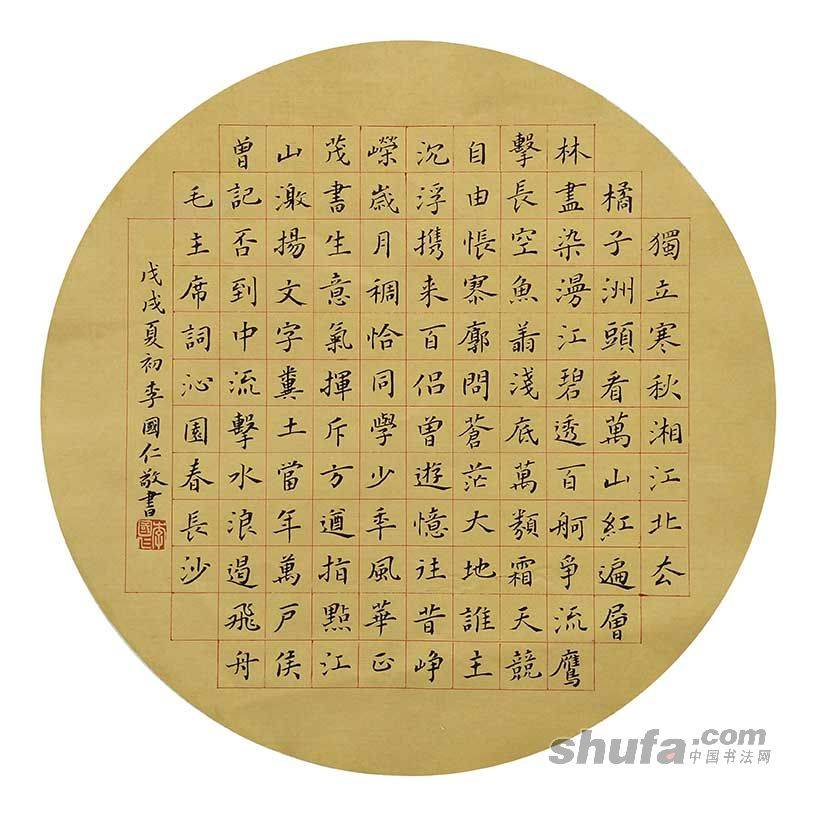 獨立寒秋湘江北厺
橘子洲頭看萬山紅遍層
林盡染漫江碧透百舸爭流鷹
擊長空魚翔淺底萬類霜天競
自由悵寥廓問蒼茫大地誰主
沉浮携来百侣曾遊憶往昔崢
嶸歲月稠恰同學少年風華正
茂書生意氣揮斥方遒指點江
山激揚文字糞土當年萬戶侯
曾記否到中流擊水浪遏飛舟
毛主席詞沁園春長沙
戊戌夏初李國仁敬書
李國仁
shufa.com
中国书法网